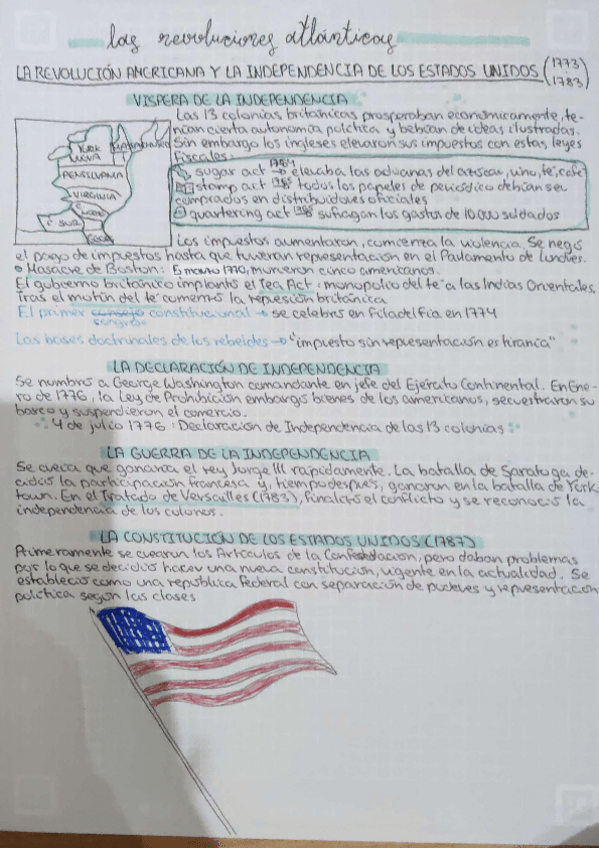 las revoluciones atlánticas
LA REVOLUCIÓN AMERICANA Y LA INDEPENDENCIA DE LOS ESTADOS UNIDOS (1773 1783)
VISPERA DE LA INDEPENDENCIA
Las 13 colonias británicas prosperaban económicamente, te-
nían cierta autonomía política y bebían de ideas ilustradas.
Sin embargo los ingleses elevaron sus impuestos con estas leyes
fiscales:
YORK
NOVA
PENSILVANIA
VIRGINIA
C. NORTE
C. SUR
sugar act → elevaba las aduanas del azúcar, vino, té, café
stamp act 1765 todos los papeles de periódico debían ser
comprados en distribuidores oficiales
quartering act 1765 sufragan los gastos de 10000 soldados
Los impuestos aumentaron, comienza la violencia. Se negó
el pago de impuestos hasta que tuvieran representación en el Parlamento de Londres.
Masacre de Boston: 5 marzo 1770, murieron cinco americanos.
El gobierno británico implantó el Tea Act: monopolio del té a las Indias Orientales.
Tras el motín del té comenzó la represión británica
El primer consejo constitucional → se celebró en Filadelfia en 1774
congreso
Las bases doctrinales de los rebeldes → "impuesto sin representación es tiranía"
LA DECLARACIÓN DE INDEPENDENCIA
Se nombró a George Washington comandante en jefe del Ejército Continental. En Ene-
ro de 1776, la Ley de Prohibición embargó bienes de los americanos, secuestraron su
barco y suspendieron el comercio.
4 de julio 1776: Declaración de Independencia de las 13 colonias
LA GUERRA DE LA INDEPENDENCIA
Se creía que ganaría el rey Jorge III rapidamente. La batalla de Saratoga de-
cidió la participación francesa y, tiempo después, ganaron en la batalla de York
town. En el Tratado de Versalles (1783), finalizó el conflicto y se reconoció la
independencia de los colonos.
LA CONSTITUCIÓN DE LOS ESTADOS UNIDOS (1787)
Primeramente se crearon los Artículos de la Confederación, pero daban problemas
por lo que se decidió hacer una nueva constitución, vigente en la actualidad. Se
estableció como una república federal con separación de poderes y representación
política según las clases